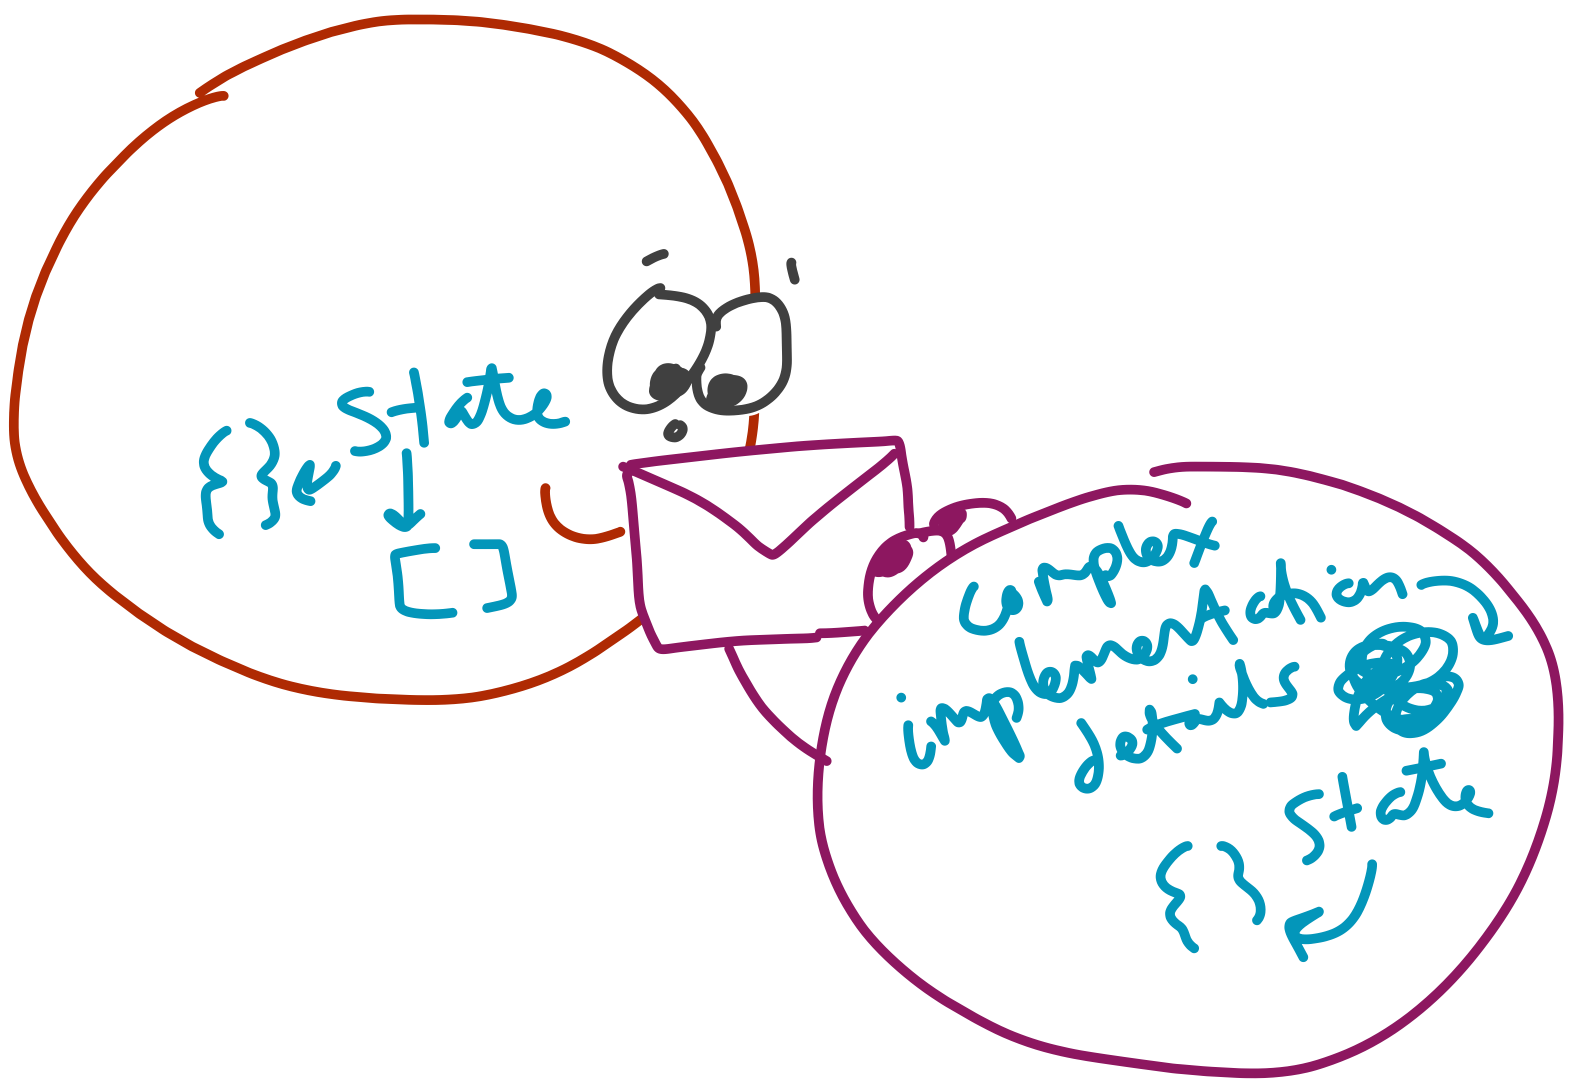 State
{ }
[ ]
Complex
implementation
details
State
{ }